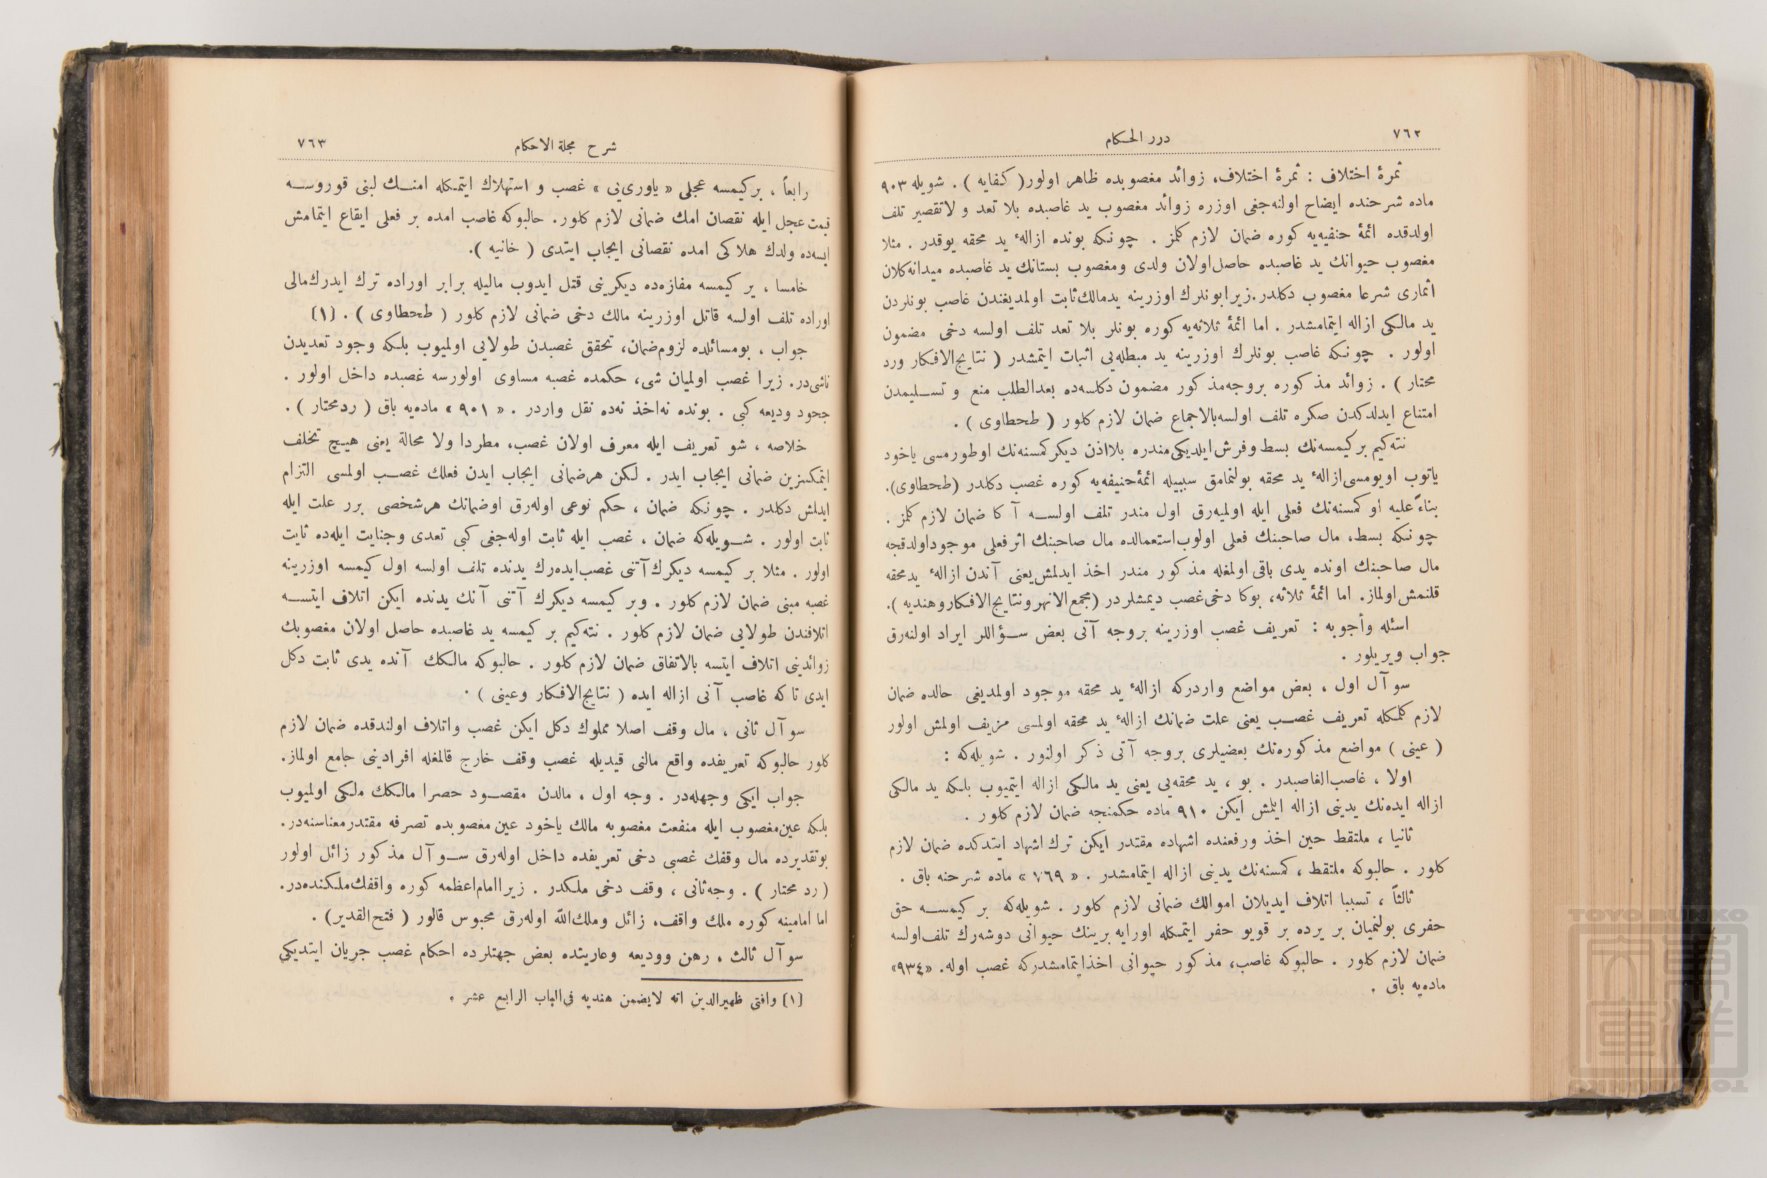 ٧٦٢
درر الحكام
ثمرهٔ اختلاف : ثمرهٔ اختلاف، زوائد مغصوبده ظاهر اولور ( كفايه ) . شويله ٩٠٣
ماده شرحنده ايضاح اولنه‌جغی اوزره زوائد مغصوب يد غاصبده بلا تعد و لاتقصير تلف
اولدقده ائمهٔ حنفيه‌يه كوره ضمان لازم كلز . چونكه بونده ازالهٔ يد محقه يوقدر . مثلا
مغصوب حيوانك يد غاصبده حاصل اولان ولدی ومغصوب بستانك يد غاصبده ميدانه كلان
اثماری شرعا مغصوب دكلدر. زيرا بونلرك اوزرينه يد مالك ثابت اولمديغندن غاصب بونلردن
يد مالكی ازاله ايتمامشدر . اما ائمهٔ ثلاثه‌يه كوره بونلر بلا تعد تلف اولسه دخی مضمون
اولور . چونكه غاصب بونلرك اوزرينه يد مبطله‌يی اثبات ايتمشدر ( نتايج‌الافكار ورد
محتار ) . زوائد مذكوره بروجه‌مذكور مضمون دكلسه‌ده بعدالطلب منع و تسليمدن
امتناع ايدلدكدن صكره تلف اولسه بالاجماع ضمان لازم كلور ( طحطاوی ) .
نته‌كيم بر كيمسه‌نك بسط وفرش ايلديكی مندره بلااذن ديكر كمسنه‌نك اوطورمسی ياخود
ياتوب اويومسی ازالهٔ يد محقه بولنمامق سببيله ائمهٔ حنيفه‌يه كوره غصب دكلدر (طحطاوی).
بناءً عليه او كمسنه‌نك فعلی ايله اولميه‌رق اول مندر تلف اولسه آكا ضمان لازم كلز .
چونكه بسط، مال صاحبنك فعلی اولوب استعمالده مال صاحبنك اثر فعلی موجود اولدقجه
مال صاحبنك اونده يدی باقی اولمغله مذكور مندر اخذ ايدلمش يعنی آندن ازالهٔ يد محقه
قلنمش اولماز. اما ائمهٔ ثلاثه، بوكا دخی غصب ديمشلردر (مجمع‌الانهر ونتايج‌الافكار وهنديه ).
اسئله وأجوبه : تعريف غصب اوزرينه بروجه آتی بعض سؤاللر ايراد اولنه‌رق
جواب ويريلور .
سوآل اول ، بعض مواضع واردركه ازالهٔ يد محقه موجود اولمديغی حالده ضمان
لازم كلمكله تعريف غصب يعنی علت ضمانك ازالهٔ يد محقه اولمسی مزيف اولمش اولور
( عينی ) مواضع مذكوره‌نك بعضيلری بروجه آتی ذكر اولنور . شويله‌كه :
اولا ، غاصب‌الغاصبدر . بو ، يد محقه‌يی يعنی يد مالكی ازاله ايتميوب بلكه يد مالكی
ازاله ايده‌نك يدينی ازاله ايلمش ايكن ٩١٠ ماده حكمنجه ضمان لازم كلور .
ثانيا ، ملتقط حين اخذ ورفعنده اشهاده مقتدر ايكن ترك اشهاد ايتدكده ضمان لازم
كلور . حالبوكه ملتقط ، كمسنه‌نك يدينی ازاله ايتمامشدر . « ٧٦٩ » ماده شرحنه باق .
ثالثاً ، تسببا اتلاف ايديلان اموالك ضمانی لازم كلور . شويله‌كه بر كيمسه حق
حفری بولنميان بر يرده بر قويو حفر ايتمكله اورايه برينك حيوانی دوشه‌رك تلف اولسه
ضمان لازم كلور . حالبوكه غاصب، مذكور حيوانی اخذ ايتمامشدركه غصب اوله. «٩٣٤»
ماده‌يه باق .
شرح مجلة الاحكام
٧٦٣
رابعاً ، بر كيمسه عجلی « ياوری‌يی » غصب و استهلاك ايتمكله امنك لبنی قوروسه
قيمت عجل ايله نقصان امك ضمانی لازم كلور. حالبوكه غاصب امده بر فعلی ايقاع ايتمامش
ايسه‌ده ولدك هلاكی امده نقصانی ايجاب ايتدی ( خانيه ).
خامسا ، بر كيمسه مفازه‌ده ديكرينی قتل ايدوب ماليله برابر اوراده ترك ايدرك مالی
اوراده تلف اولسه قاتل اوزرينه مالك دخی ضمانی لازم كلور ( طحطاوی ) . [١]
جواب ، بومسائلده لزوم ضمان، تحقق غصبدن طولايی اولميوب بلكه وجود تعديدن
ناشی‌در. زيرا غصب اولميان شی، حكمده غصبه مساوی اولورسه غصبده داخل اولور .
جحود وديعه كبی . بونده نه‌اخذ نه‌ده نقل واردر . « ٩٠١ » ماده‌يه باق ( ردمحتار ) .
خلاصه ، شو تعريف ايله معرف اولان غصب، مطردا ولا محالة يعنی هيچ تخلف
ايتمكسزين ضمانی ايجاب ايدر . لكن هرضمانی ايجاب ايدن فعلك غصب اولمسی التزام
ايدلمش دكلدر . چونكه ضمان ، حكم نوعی اوله‌رق اوضمانك هرشخصی برر علت ايله
ثابت اولور . شويله‌كه ضمان ، غصب ايله ثابت اوله‌جغی كبی تعدی وجنايت ايله‌ده ثابت
اولور . مثلا بر كيمسه ديكرك آتنی غصب‌ايده‌رك يدنده تلف اولسه اول كيمسه اوزرينه
غصبه مبنی ضمان لازم كلور . وبر كيمسه ديكرك آتنی آنك يدنده ايكن اتلاف ايتسه
اتلافندن طولايی ضمان لازم كلور . نته‌كيم بر كيمسه يد غاصبده حاصل اولان مغصوبك
زوائدينی اتلاف ايتسه بالاتفاق ضمان لازم كلور . حالبوكه مالكك آنده يدی ثابت دكل
ايدی تا كه غاصب آنی ازاله ايده ( نتايج‌الافكار وعينی ) .
سوآل ثانی ، مال وقف اصلا مملوك دكل ايكن غصب واتلاف اولندقده ضمان لازم
كلور حالبوكه تعريفده واقع مالنی قيديله غصب وقف خارج قالمغله افرادينی جامع اولماز.
جواب ايكی وجهله‌در . وجه اول ، مالدن مقصود حصرا مالكك ملكی اولميوب
بلكه عين‌مغصوب ايله منفعت مغصوبه مالك ياخود عين مغصوبده تصرفه مقتدر معناسنه‌در.
بوتقديرده مال وقفك غصبی دخی تعريفده داخل اوله‌رق سوآل مذكور زائل اولور
( رد محتار ) . وجه‌ثانی ، وقف دخی ملكدر . زيرا امام‌اعظمه كوره واقفك ملكنده‌در.
اما امامينه كوره ملك واقف، زائل وملك‌الله اوله‌رق محبوس قالور ( فتح‌القدير) .
سوآل ثالث ، رهن ووديعه وعاريتده بعض جهتلرده احكام غصب جريان ايتديكی
[١] وافتی ظهيرالدين انه لايضمن هنديه فی‌الباب الرابع عشر .
TOYO BUNKO
東洋文庫